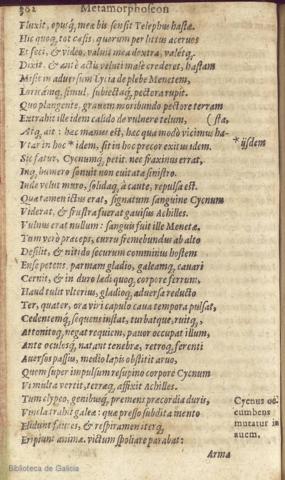 302 Metamorphoseon
Fluxit, opusq́; meæ bis sensit Telephus hastæ.
Hic quoq, tot cæsis, quorum per littus aceruos
Et feci, & video, valuit mea dextra, valetq́,.
Dixit. & antè actis veluti malè crederet, hastam
Misit in aduersum Lycia de plebe Menœtem,
Loricamq́, simul, subiectaq́, pectora rupit.
Quo plangente grauem moribundo pectore terram
Extrahit illud idem calido de vulnere telum, (sta,
Atq, ait: hac manus est, hac qua modò vicimus ha-
Vtar in hoc * idem, sit in hoc precor exitus idem. * ijsdem
Sic fatur, Cycnumq́, petit. nec fraxinus errat,
Inq, humero sonuit non euitata sinistro.
Inde velut muro, solidaq́, à caute, repulsa est.
Qua tamen ictus erat, signatum sanguine Cycnum
Viderat, & frustra fuerat gauisus Achilles.
Vulnus erat nullum: sanguis fuit ille Menœtæ.
Tum verò præceps, curru fremebundus ab alto
Desilit, & nitido securum comminus hostem
Ense petens, parmam gladio, galeamq́, cauari
Cernit, & in duro lædi quoq, corpore ferrum,
Haud tulit vlterius, clypeoq́, aduersa reducto
Ter, quater, ora viri capulo caua tempora pulsat,
Cedentemq́, sequens instat, turbatque, ruitq́,,
Attonitoq́, negat requiem, pauor occupat illum,
Ante oculosq́, natant tenebræ, retroq́, ferenti
Auersos passus, medio lapis obstitit aruo,
Quem super impulsum resupino corpore Cycnum
Vi multa vertit, terræq́, affixit Achilles.
Tum clypeo, genibusq́, premens præcordia duris,
Vincla trahit galeæ: quæ presso subdita mento
Elidunt fauces, & respiramen iterq́,
Eripiunt animæ. victum spoliare parabat:
Cycnus oc-
cumbens
mutatur in
auem.
Arma
Biblioteca de Galicia